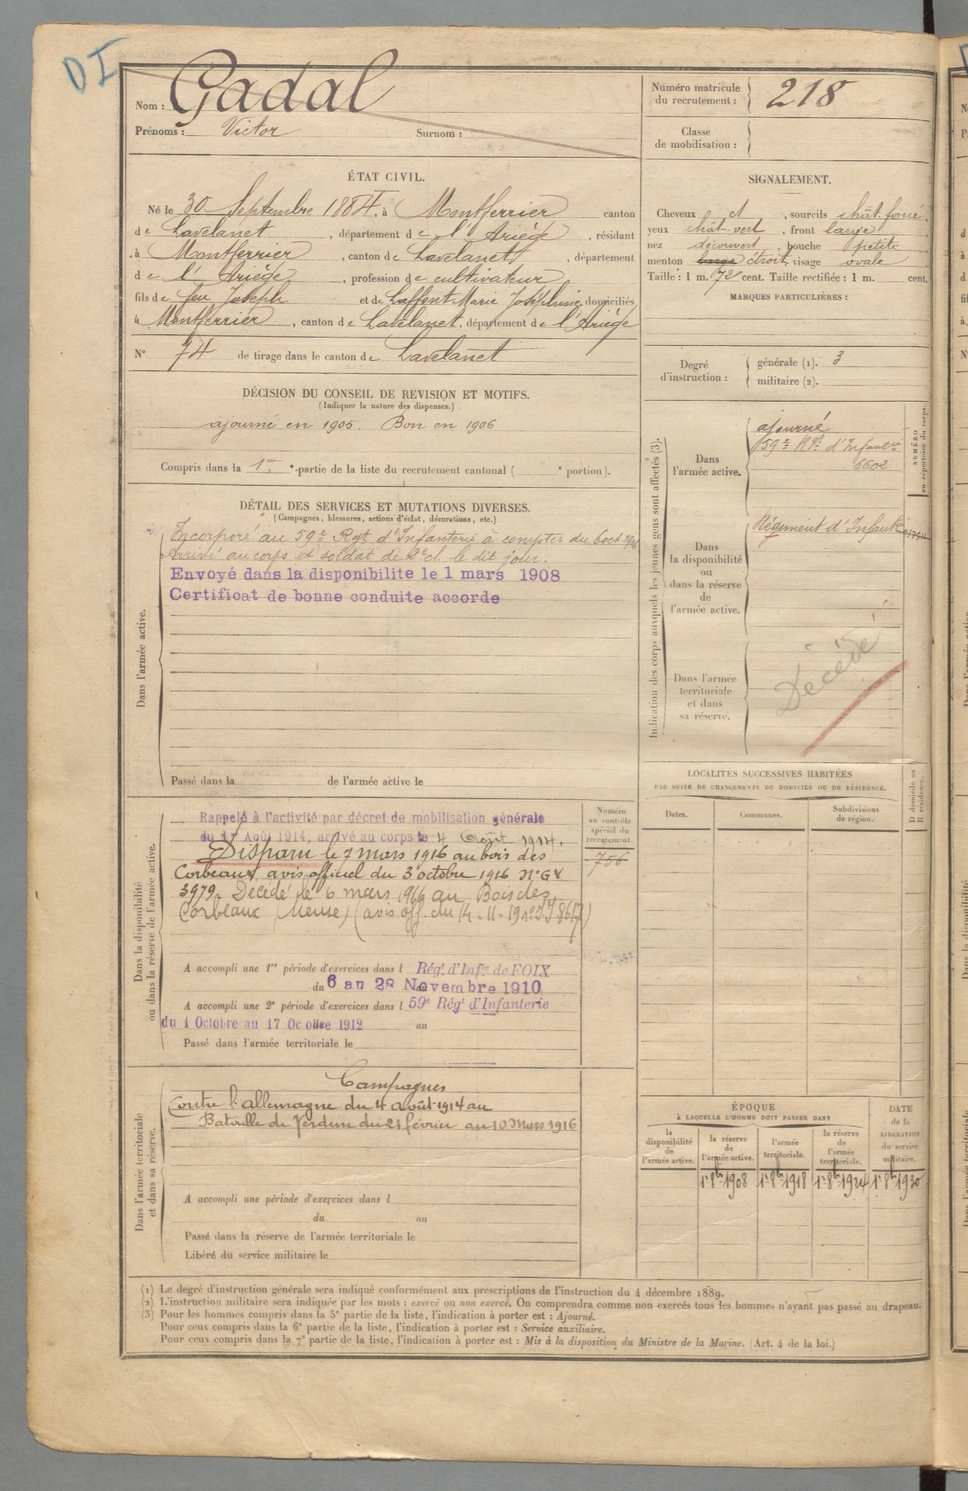 DI
Nom : Gadal
Prénoms : Victor Surnom :
Numéro matricule du recrutement : 218
Classe de mobilisation :
ÉTAT CIVIL.
Né le 30 Septembre 1884, à Montferrier canton
de Lavelanet, département de l'Ariège, résidant
à Montferrier, canton de Lavelanet, département
de l'Ariège, profession de cultivateur
fils de feu Joseph et de Laffont Marie Joséphine domiciliés
à Montferrier, canton de Lavelanet, département de l'Ariège
N° 74 de tirage dans le canton de Lavelanet
SIGNALEMENT.
Cheveux ct, sourcils chât foncé,
yeux chât. vert, front large
nez découvert, bouche petite
menton étroit, visage ovale
Taille : 1 m. 72 cent. Taille rectifiée : 1 m. cent.
MARQUES PARTICULIÈRES :
Degré d'instruction : générale (1). 3
militaire (2).
DÉCISION DU CONSEIL DE REVISION ET MOTIFS.
(Indiquer la nature des dispenses.)
ajourné en 1905. Bon en 1906
Compris dans la 1re partie de la liste du recrutement cantonal ( portion).
DÉTAIL DES SERVICES ET MUTATIONS DIVERSES.
(Campagnes, blessures, actions d'éclat, décorations, etc.)
Dans l'armée active.
Incorporé au 59e Rgt d'Infanterie à compter du 6 oct.
Arrivé au corps et soldat de 2e cl. le dit jour.
Envoyé dans la disponibilite le 1 mars 1908
Certificat de bonne conduite accorde
Passé dans la de l'armée active le
Indication des corps auxquels les jeunes gens sont affectés (3).
NUMÉRO au répertoire du corps.
Dans l'armée active.
ajourné
59e Rgt d'Infantrie
6602
Dans la disponibilité ou dans la réserve de l'armée active.
Régiment d'Infantrie
Dans l'armée territoriale et dans sa réserve.
Décédé
LOCALITÉS SUCCESSIVES HABITÉES
PAR SUITE DE CHANGEMENTS DE DOMICILE OU DE RÉSIDENCE.
Dates. Communes. Subdivisions de région. D domicile ou R résidence.
Dans la disponibilité ou dans la réserve de l'armée active.
Numéro au contrôle spécial du recrutement.
756
Rappelé à l'activité par décret de mobilisation générale
du 1er Août 1914, arrivé au corps le 4 Août 1914.
Disparu le 7 mars 1916 au bois des
Corbeaux, avis officiel du 3 octobre 1916 N° GV
3979. Décédé le 6 mars 1916 au Bois des
Corbeaux (Meuse) (avis off. du 14-11-19
A accompli une 1re période d'exercices dans l Régt d'Infie de FOIX
du 6 au 28 Novembre 1910
A accompli une 2e période d'exercices dans l 59e Régt d'Infanterie
du 1 Octobre au 17 Octobre 1912 au
Passé dans l'armée territoriale le
Dans l'armée territoriale et dans sa réserve.
Campagnes
Contre l'allemagne du 4 août 1914 au
Bataille de Verdun du 21 février au 10 Mars 1916
A accompli une période d'exercices dans l
du au
Passé dans la réserve de l'armée territoriale le
Libéré du service militaire le
ÉPOQUE
À LAQUELLE L'HOMME DOIT PASSER DANS
la disponibilité de l'armée active. la réserve de l'armée active. l'armée territoriale. la réserve de l'armée territoriale. DATE de la LIBÉRATION du service militaire.
1er 8bre 1908 1er 8bre 1918 1er 8bre 1924 1er 8bre 1930
(1) Le degré d'instruction générale sera indiqué conformément aux prescriptions de l'instruction du 4 décembre 1889.
(2) L'instruction militaire sera indiquée par les mots : exercé ou non exercé. On comprendra comme non exercés tous les hommes n'ayant pas passé au drapeau.
(3) Pour les hommes compris dans la 5e partie de la liste, l'indication à porter est : Ajourné.
Pour ceux compris dans la 6e partie de la liste, l'indication à porter est : Service auxiliaire.
Pour ceux compris dans la 7e partie de la liste, l'indication à porter est : Mis à la disposition du Ministre de la Marine. (Art. 4 de la loi.)